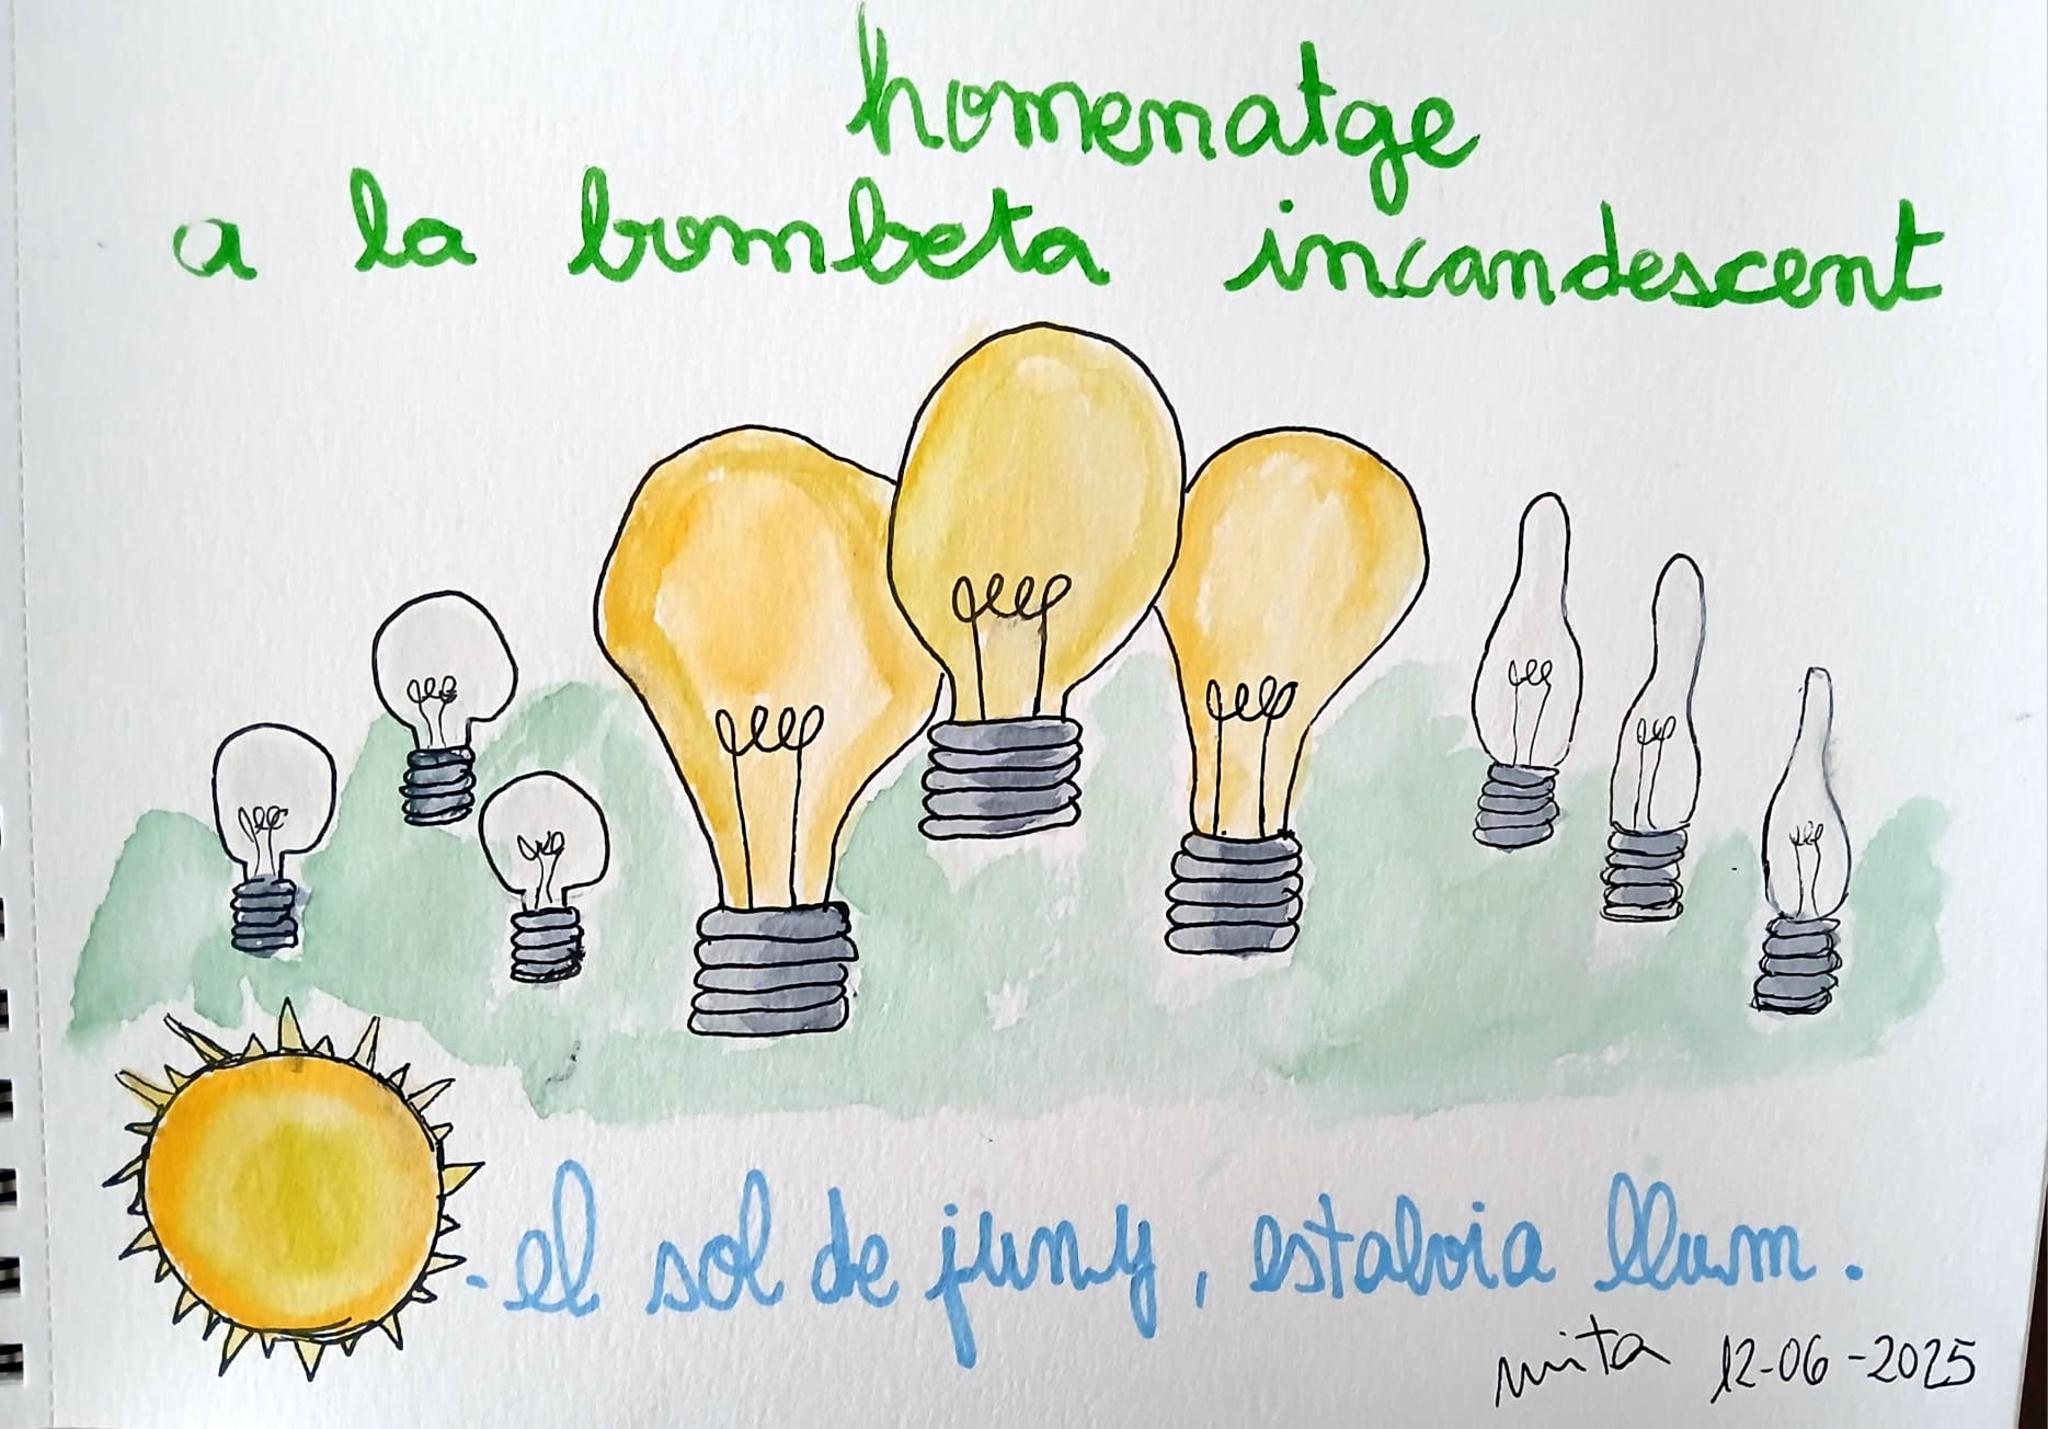 homenatge
a la bombeta incandescent
- el sol de juny, estalvia llum.
mita 12-06-2025